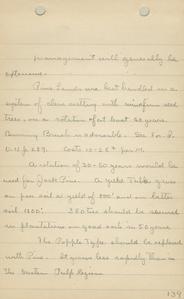 management will generally be
extensive.
Pine Lands are best handled in a
system of clear cutting with uniform seed
trees, on a rotation of at least 50 years.
Burning Brush is advisable. See For. Q.
V. 11 p. 289. Costs 10-25¢ per M.
A rotation of 30-50 years would be
used for Jack Pine. A yield Table gives
on poor soil a yield of 800' and on better
soil 1200'. 350 ties should be secured
in plantations on good soils in 50 years
The Popple Type should be replaced
with Pine. It grows less rapidly than in
the Eastern Pulp Region
139